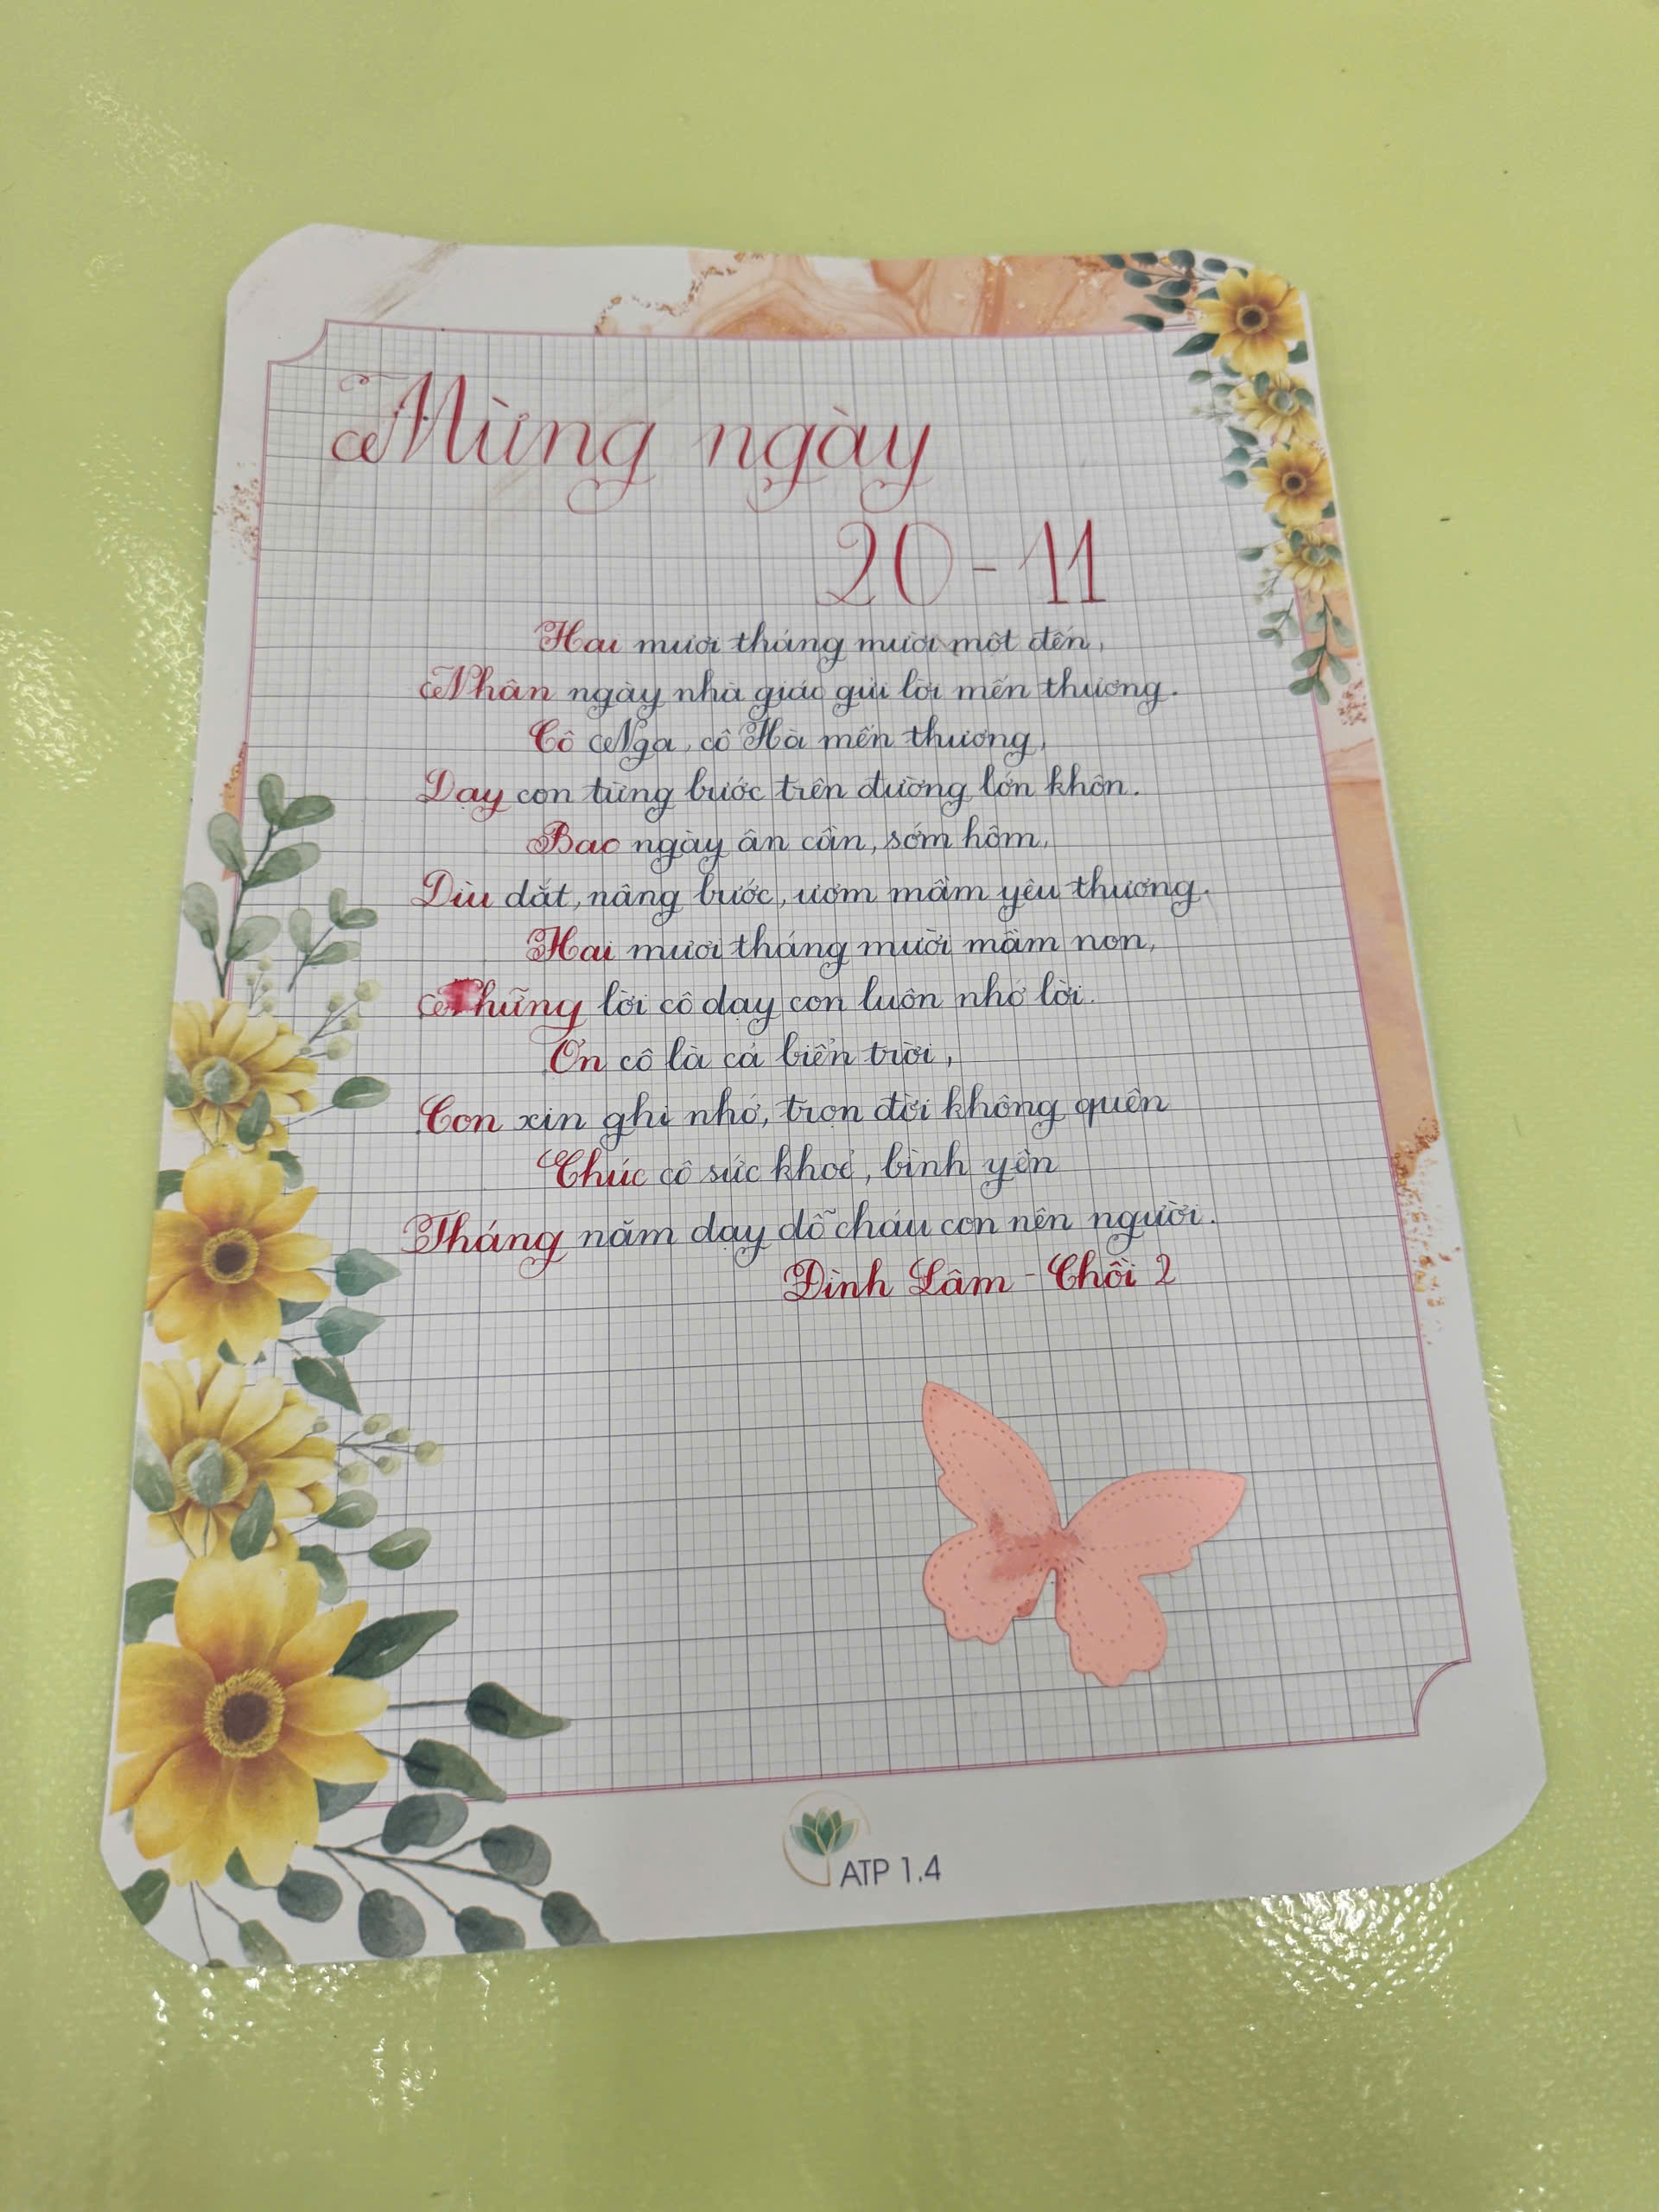 Mừng ngày
20-11
Hai mươi tháng mười một đến,
Nhân ngày nhà giáo gửi lời mến thương.
Cô Nga, cô Hà mến thương,
Dạy con từng bước trên đường lớn khôn.
Bao ngày ân cần, sớm hôm,
Dìu dắt, nâng bước, ươm mầm yêu thương.
Hai mươi tháng mười mầm non,
Những lời cô dạy con luôn nhớ lời.
Ơn cô là cả biển trời,
Con xin ghi nhớ, trọn đời không quên
Chúc cô sức khoẻ, bình yên
Tháng năm dạy dỗ cháu con nên người.
Đình Lâm - Chồi 2
ATP 1.4